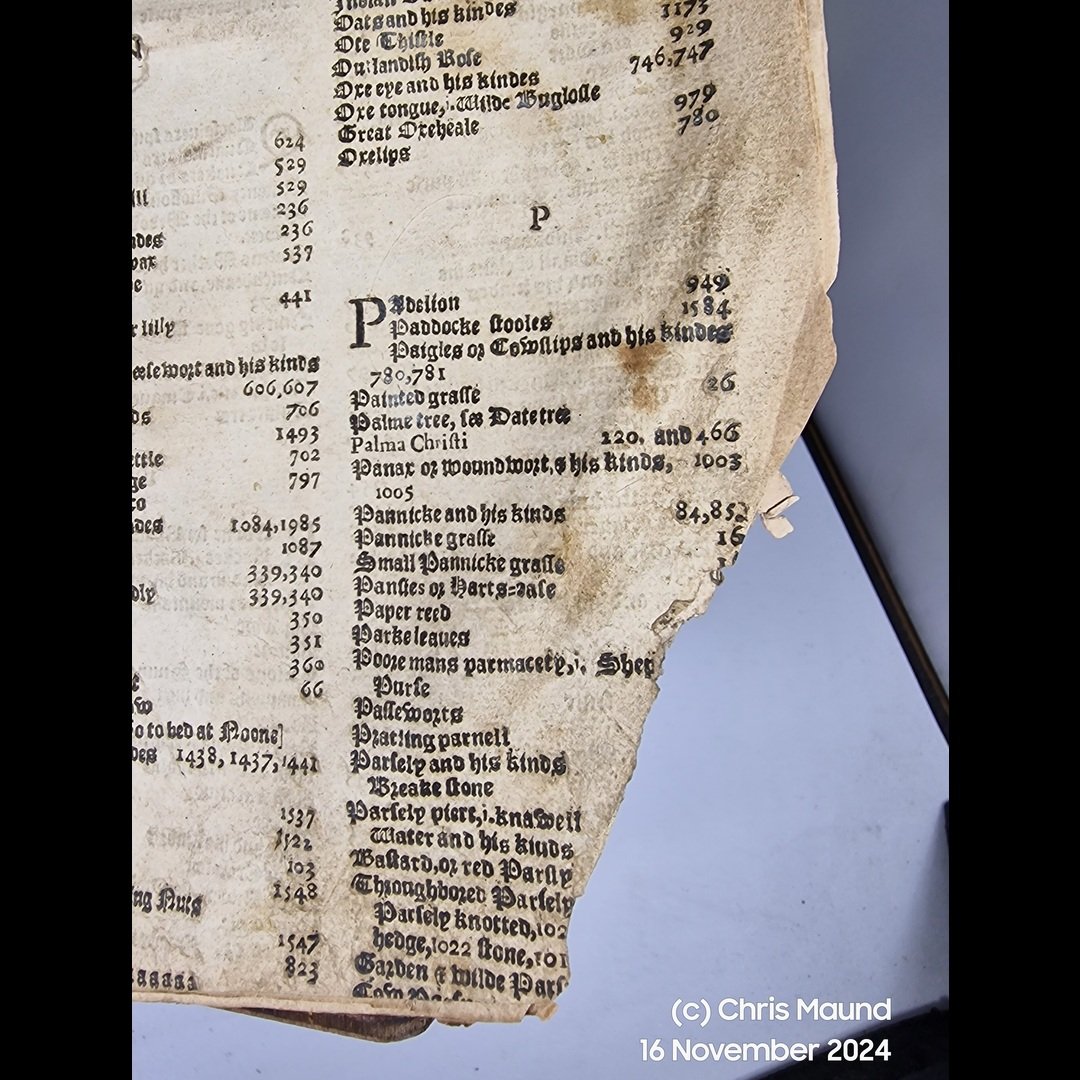 624
529
ill 529
236
ndes 236
oax 537
e
441
r lilly
eesewort and his kinds
606,607
ds 706
1493
ettle 702
ge 797
co
des 1084,1985
1087
339,340
dly 339,340
350
351
360
e 66
o to bed at Noone]
des 1438, 1437, 1441
1537
1522
103
ing Nuts 1548
1547
823
aaaaaa
Oats and his kindes 1173
Ote Thistle 929
Outlandish Rose 746,747
Oxe eye and his kindes
Oxe tongue, i. Wilde Buglosse 979
Great Oxeheale 780
Oxelips
P
PAdelion 949
Paddocke stooles 1584
Paigles or Cowslips and his kindes
780,781
Painted grasse 26
Palme tree, see Date tree
Palma Christi 120. and 466
Panax or woundwort, & his kinds, 1003
1005
Pannicke and his kinds 84,85
Pannicke grasse 16
Small Pannicke grasse
Pansies or Harts=ease
Paper reed
Parke leaues
Poore mans parmacety, i. Shep
Purse
Passeworts
Pratling parnell
Parsely and his kinds
Breake stone
Parsely piert, i. knawell
Water and his kinds
Bastard, or red Parsly
Throughbored Parsely
Parsely knotted, 102
hedge, 1022 stone, 101
Garden & wilde Pars
(c) Chris Maund
16 November 2024